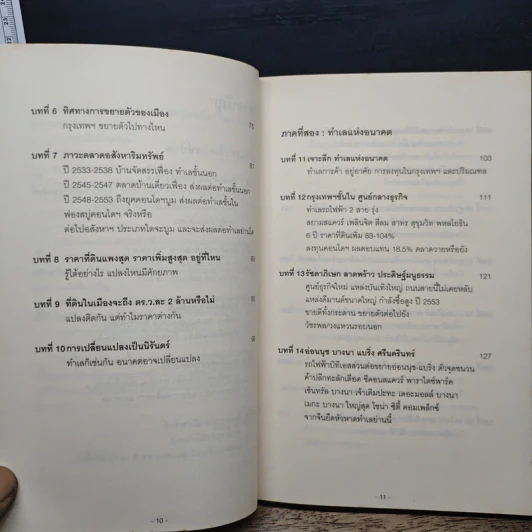 บทที่ 6 ทิศทางการขยายตัวของเมือง
กรุงเทพฯ ขยายตัวไปทางไหน
บทที่ 7 ภาวะตลาดอสังหาริมทรัพย์
ปี 2533-2538 บ้านจัดสรรเฟื่อง ทำเลชั้นนอก
ปี 2545-2547 ตลาดบ้านเดี่ยวเฟื่อง ส่งผลต่อทำเลชั้นใน
ปี 2548-2553 ถึงยุคคอนโดฯบูม ส่งผลต่อทำเลชั้นใน
ฟองสบู่คอนโดฯ จริงหรือ
ต่อไปอสังหาฯ ประเภทใดจะบูม และจะส่งผลต่อทำเลย่านใด
บทที่ 8 ราคาที่ดินแพงสุด ราคาเพิ่มสูงสุด อยู่ที่ไหน
รู้ได้อย่างไร แปลงไหนมีศักยภาพ
บทที่ 9 ที่ดินในเมืองจะถึง ตร.ว.ละ 2 ล้านหรือไม่
แปลงติดกัน แต่ทำไมราคาต่างกัน
บทที่ 10 การเปลี่ยนแปลงเป็นนิรันดร์
ทำเลก็เช่นกัน อนาคตอาจเปลี่ยนแปลง
- 10 -
ภาคที่สอง : ทำเลแห่งอนาคต
บทที่ 11 เจาะลึก ทำเลแห่งอนาคต 103
ทำเลการค้า อยู่อาศัย การลงทุนในกรุงเทพฯ และปริมณฑล
บทที่ 12 กรุงเทพฯชั้นใน ศูนย์กลางธุรกิจ 111
ทำเลรถไฟฟ้า 2 สาย รุ่ง
สยามสแควร์ เพลินจิต สีลม สาทร สุขุมวิท พหลโยธิน
6 ปี ราคาที่ดินเพิ่ม 83-104%
ลงทุนคอนโดฯ ผลตอบแทน 18.5% ตลาดวายหรือยัง
บทที่ 13 รัชดาภิเษก ลาดพร้าว ประดิษฐ์มนูธรรม 121
ศูนย์ธุรกิจใหม่ แหล่งบันเทิงใหญ่ ถนนสายนี้ไม่เคยหลับ
แหล่งดีมานด์ขนาดใหญ่ กำลังซื้อสูง ปี 2553
ขายดีทั้งกระดาน ขยายตัวต่อไปยัง
วัชรพล/วงแหวนรอบนอก
บทที่ 14 อ่อนนุช บางนา แบริ่ง ศรีนครินทร์ 127
รถไฟฟ้าบีทีเอสส่วนต่อขยายอ่อนนุช-แบริ่ง ตัวจุดชนวน
ค้าปลีกทะลักเดือด ซีคอนสแควร์ พาราไดซ์พาร์ค
เซ็นทรัล บางนา เจ้าเดิมปะทะ เดอะมอลล์ บางนา
เมกะ บางนา ใหญ่สุด ไชน่า ซิตี้ คอมเพล็กซ์
จากจีนยึดหัวหาดทำเลย่านนี้
- 11 -